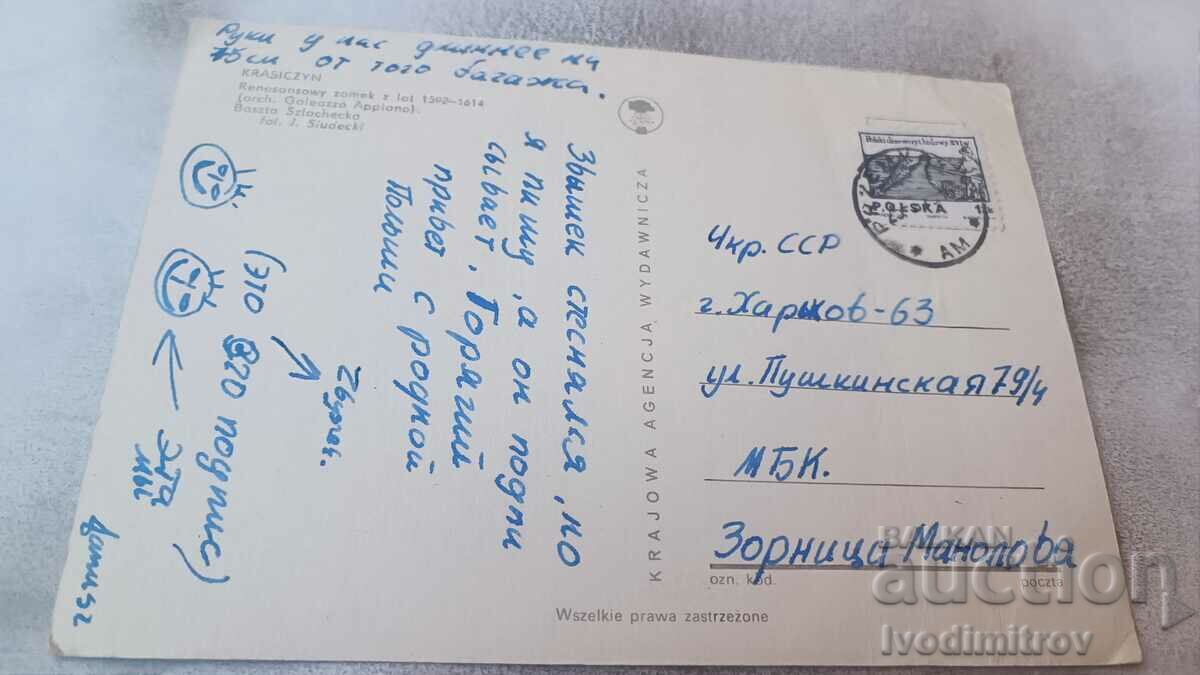 Руки у нас длиннее на
15см от того багажа.
KRASICZYN
Renesansowy zamek z lat 1592—1614
(arch. Galeazzo Appiano).
Baszta Szlachecka
fot. J. Siudecki
Збышек стеснялся, но
я пишу, а он подпи
сывает. Горячий
привет с родной
Польши
Zbyszek.
(это его подпис)
эта
мы
Dariusz
KRAJOWA AGENCJA WYDAWNICZA
POLSKA
AM
Укр. ССР
г. Харьков-63
ул. Пушкинская 79/4
МБК.
Зорница Манолова
ozn. kod.
poczta
Wszelkie prawa zastrzeżone
BALKAN
auction
Ivodimitrov